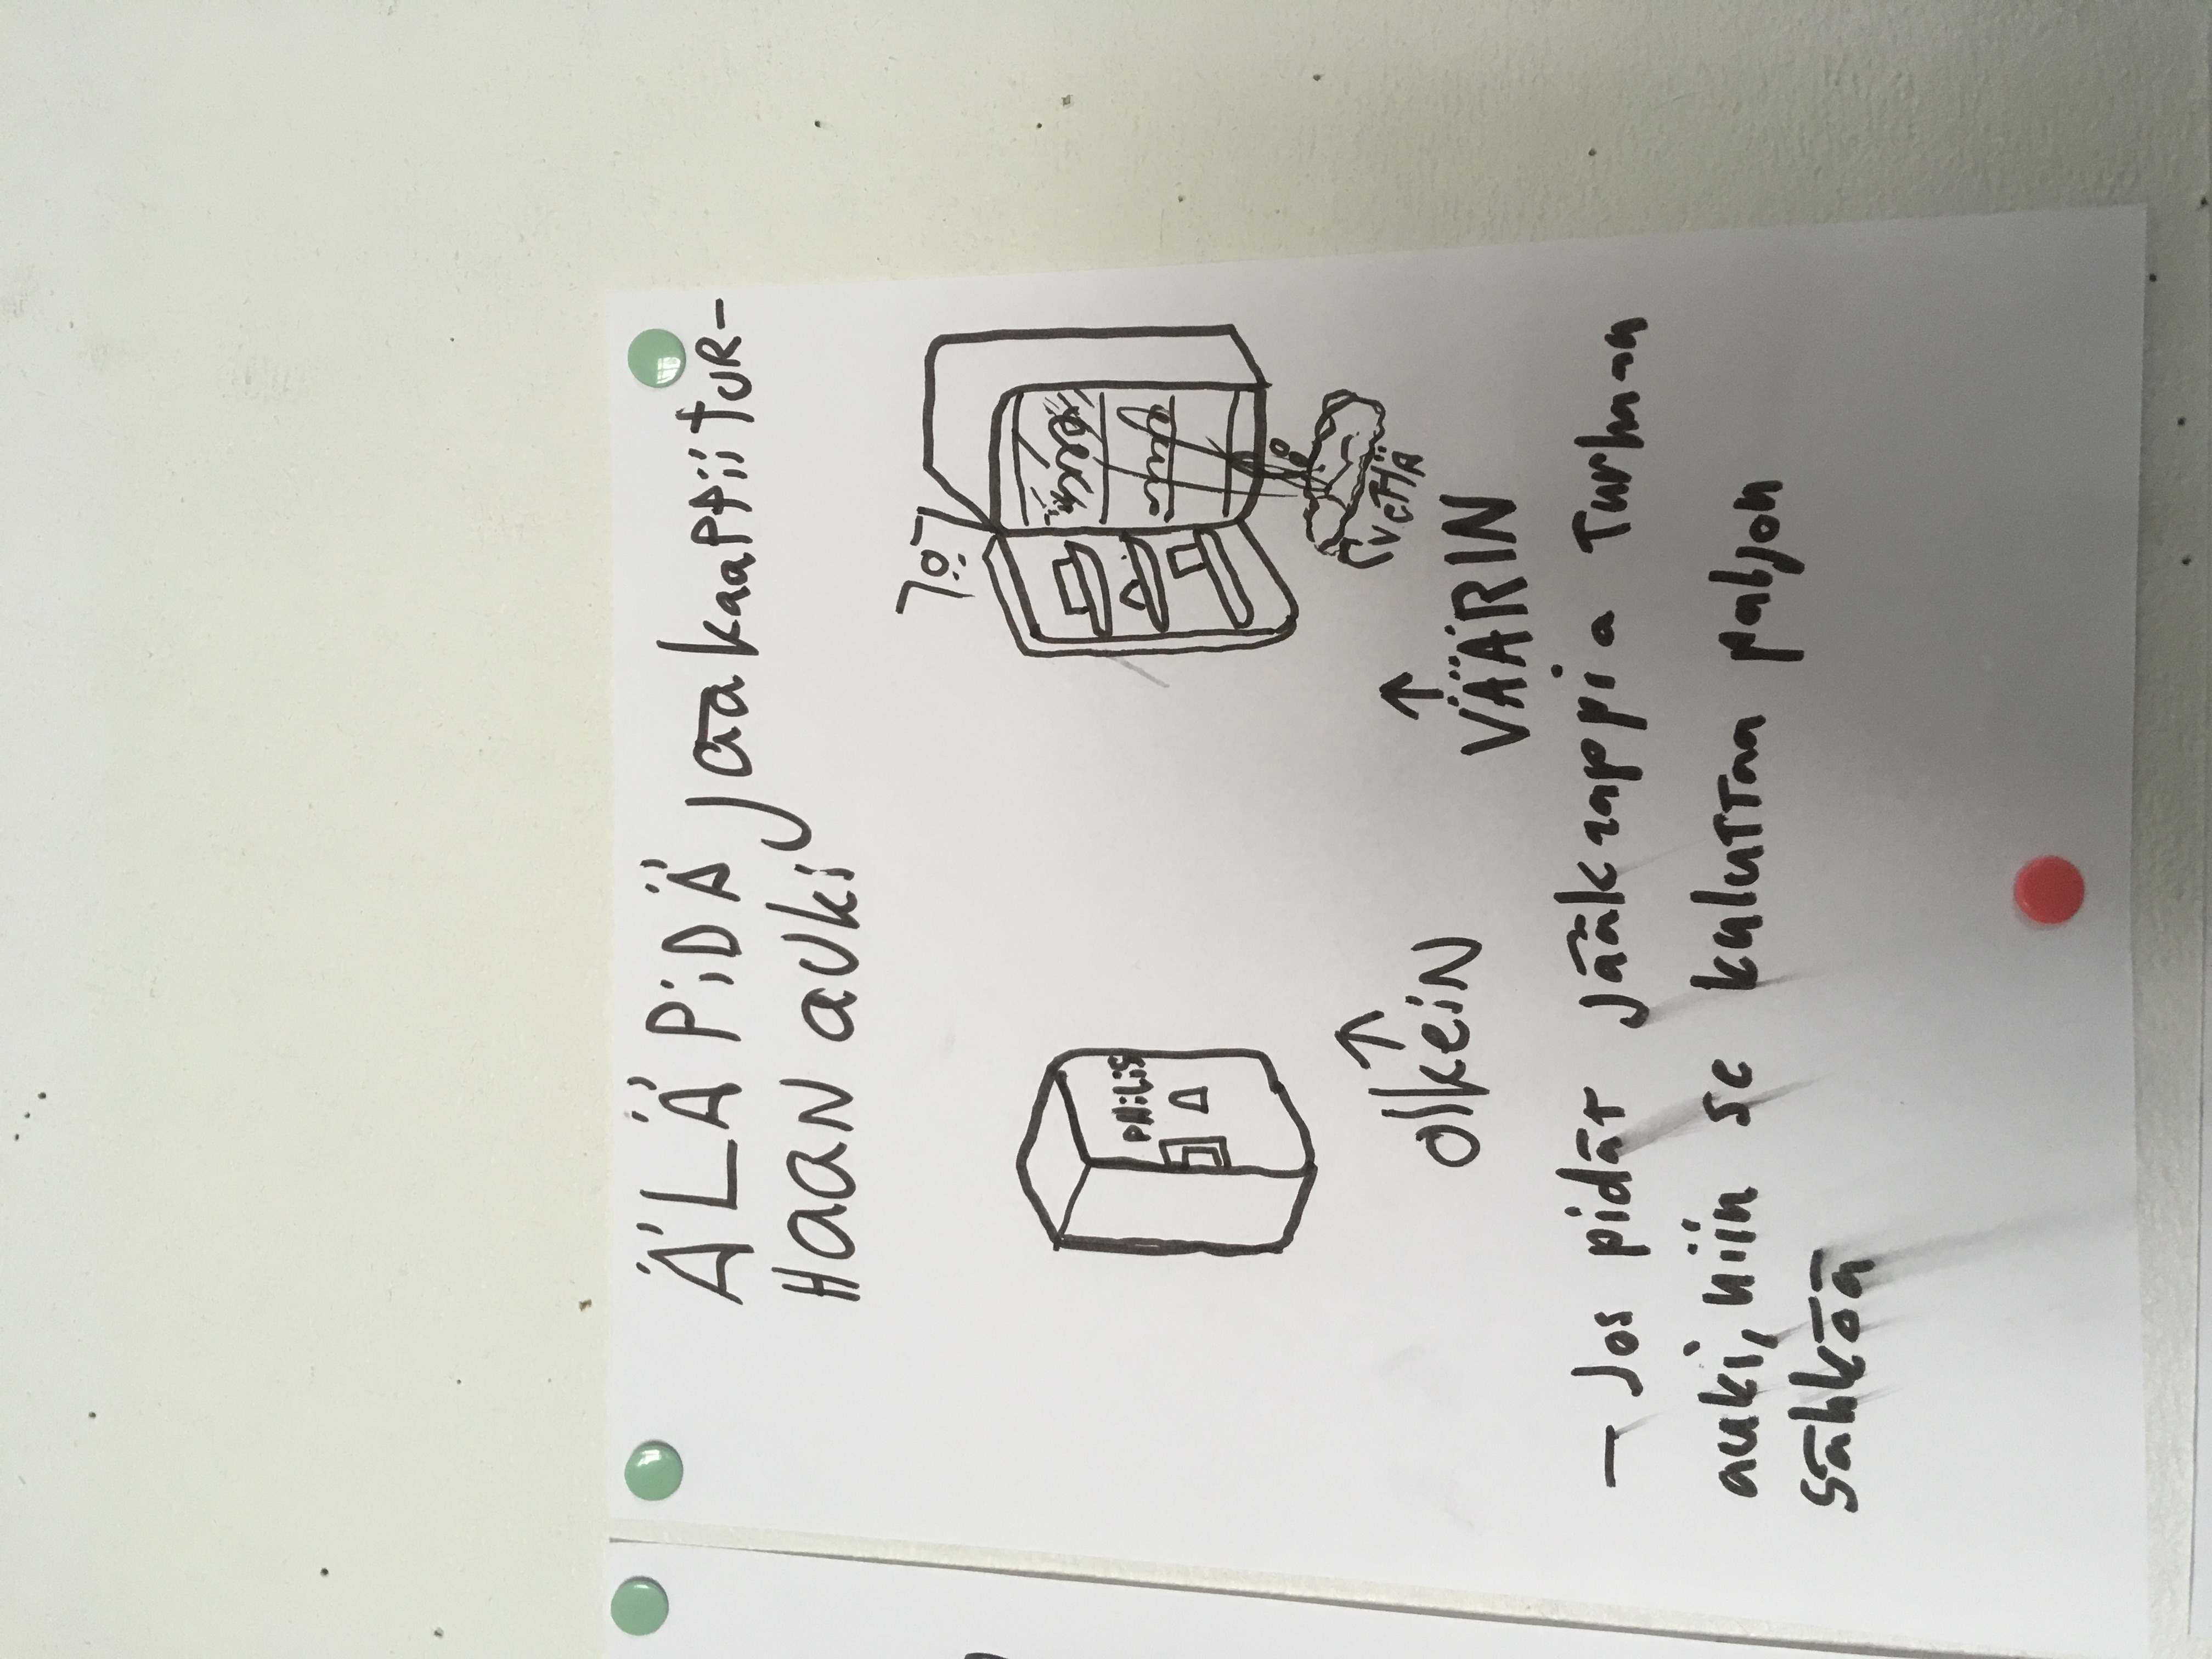 ÄLÄ PiDÄ JääkaaPPii tUR-
HAAN aUKi
70:
PHiLiS
(VETTÄ
OIKEiN
VÄÄRIN
– Jos pidät jääkaappia Turhaan
auki, niin se kuluttaa paljon
Sähköä